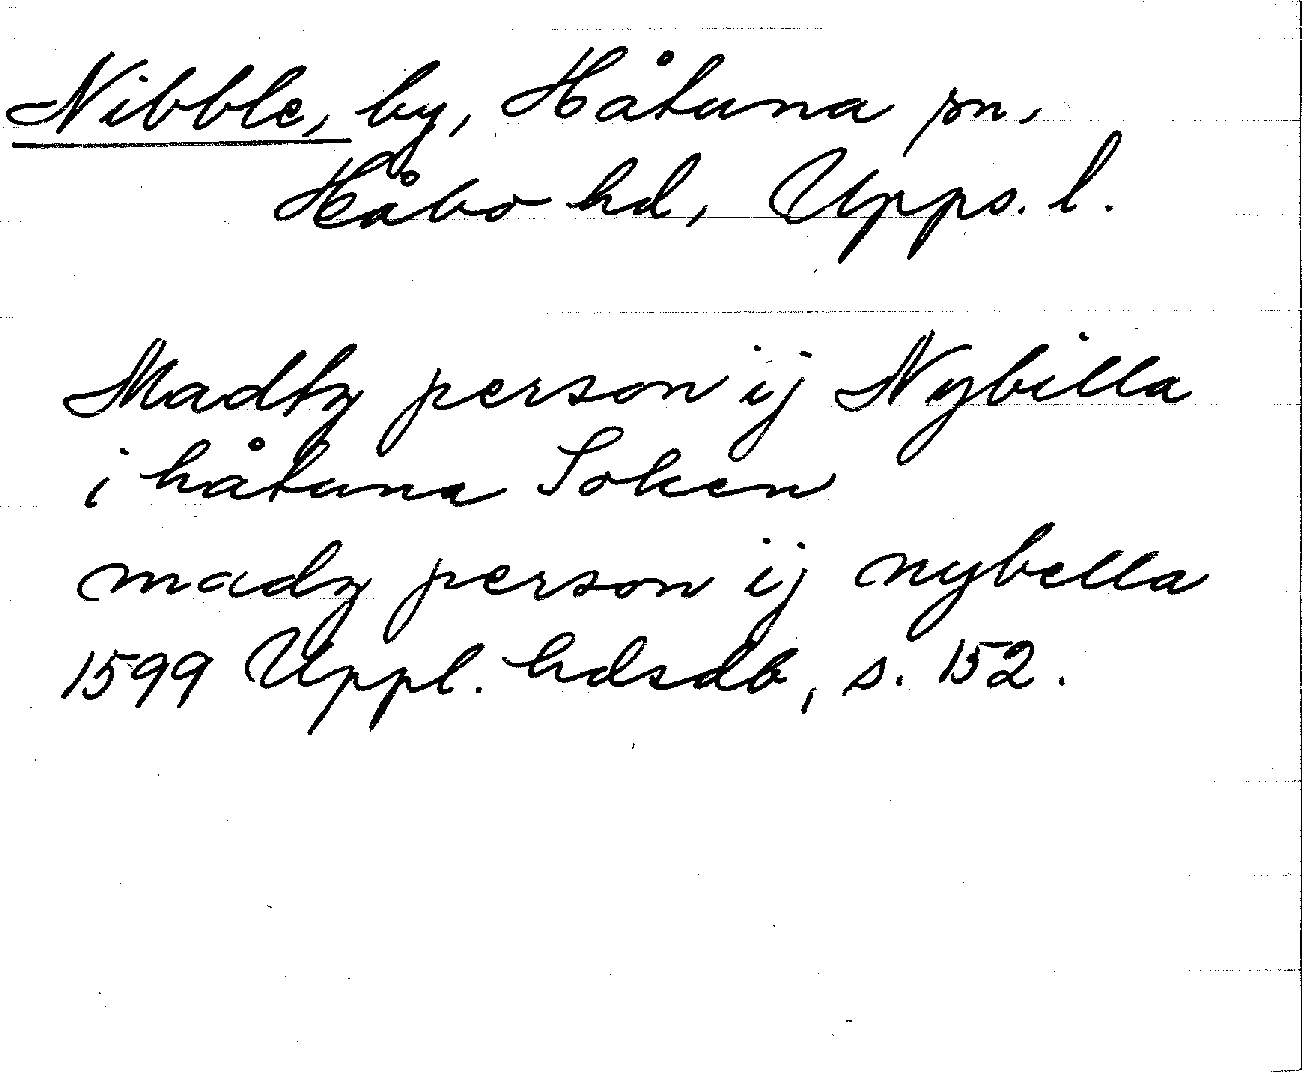 Nibble, by, Håtuna sn,
Håbo hd, Upps. l.
Madtz person ij Nybilla
i håtuna Soken
madz person ij nybella
1599 Uppl. hdsdb, s. 152.